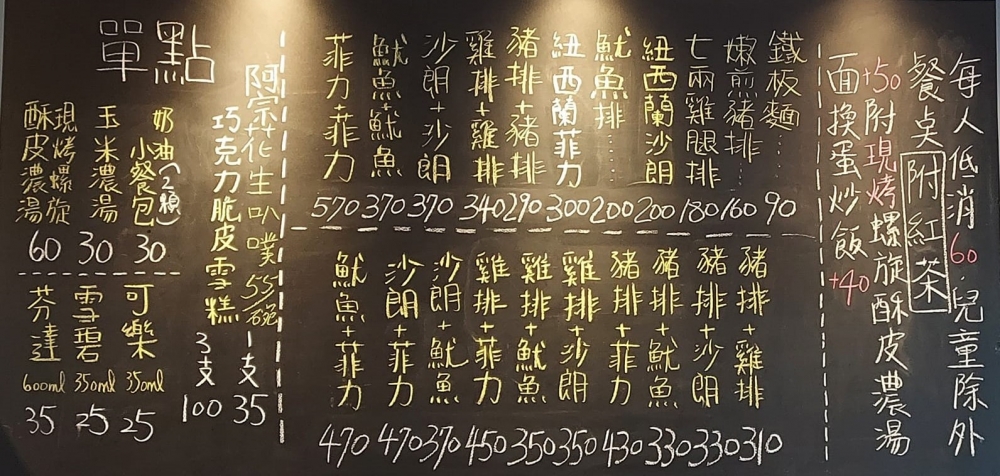 每人低消60.兒童除外
餐奌附紅茶
+50附現烤螺旋酥皮濃湯
面換蛋炒飯+40
鐵板麵……90
嫩煎豬排……160
七兩雞腿排180
紐西蘭沙朗200
魷魚排……200
紐西蘭菲力300
豬排+豬排290
雞排+雞排340
沙朗+沙朗370
魷魚+魷魚370
菲力+菲力570
豬排+雞排310
豬排+沙朗330
豬排+魷魚330
豬排+菲力430
雞排+沙朗350
雞排+魷魚350
雞排+菲力450
沙朗+魷魚370
沙朗+菲力470
魷魚+菲力470
單點
阿宗花生叭噗55/碗
巧克力脆皮雪糕
1支35
3支100
奶油小餐包(2顆)30
玉米濃湯30
現烤螺旋酥皮濃湯60
可樂350ml 25
雪碧350ml 25
芬達600ml 35